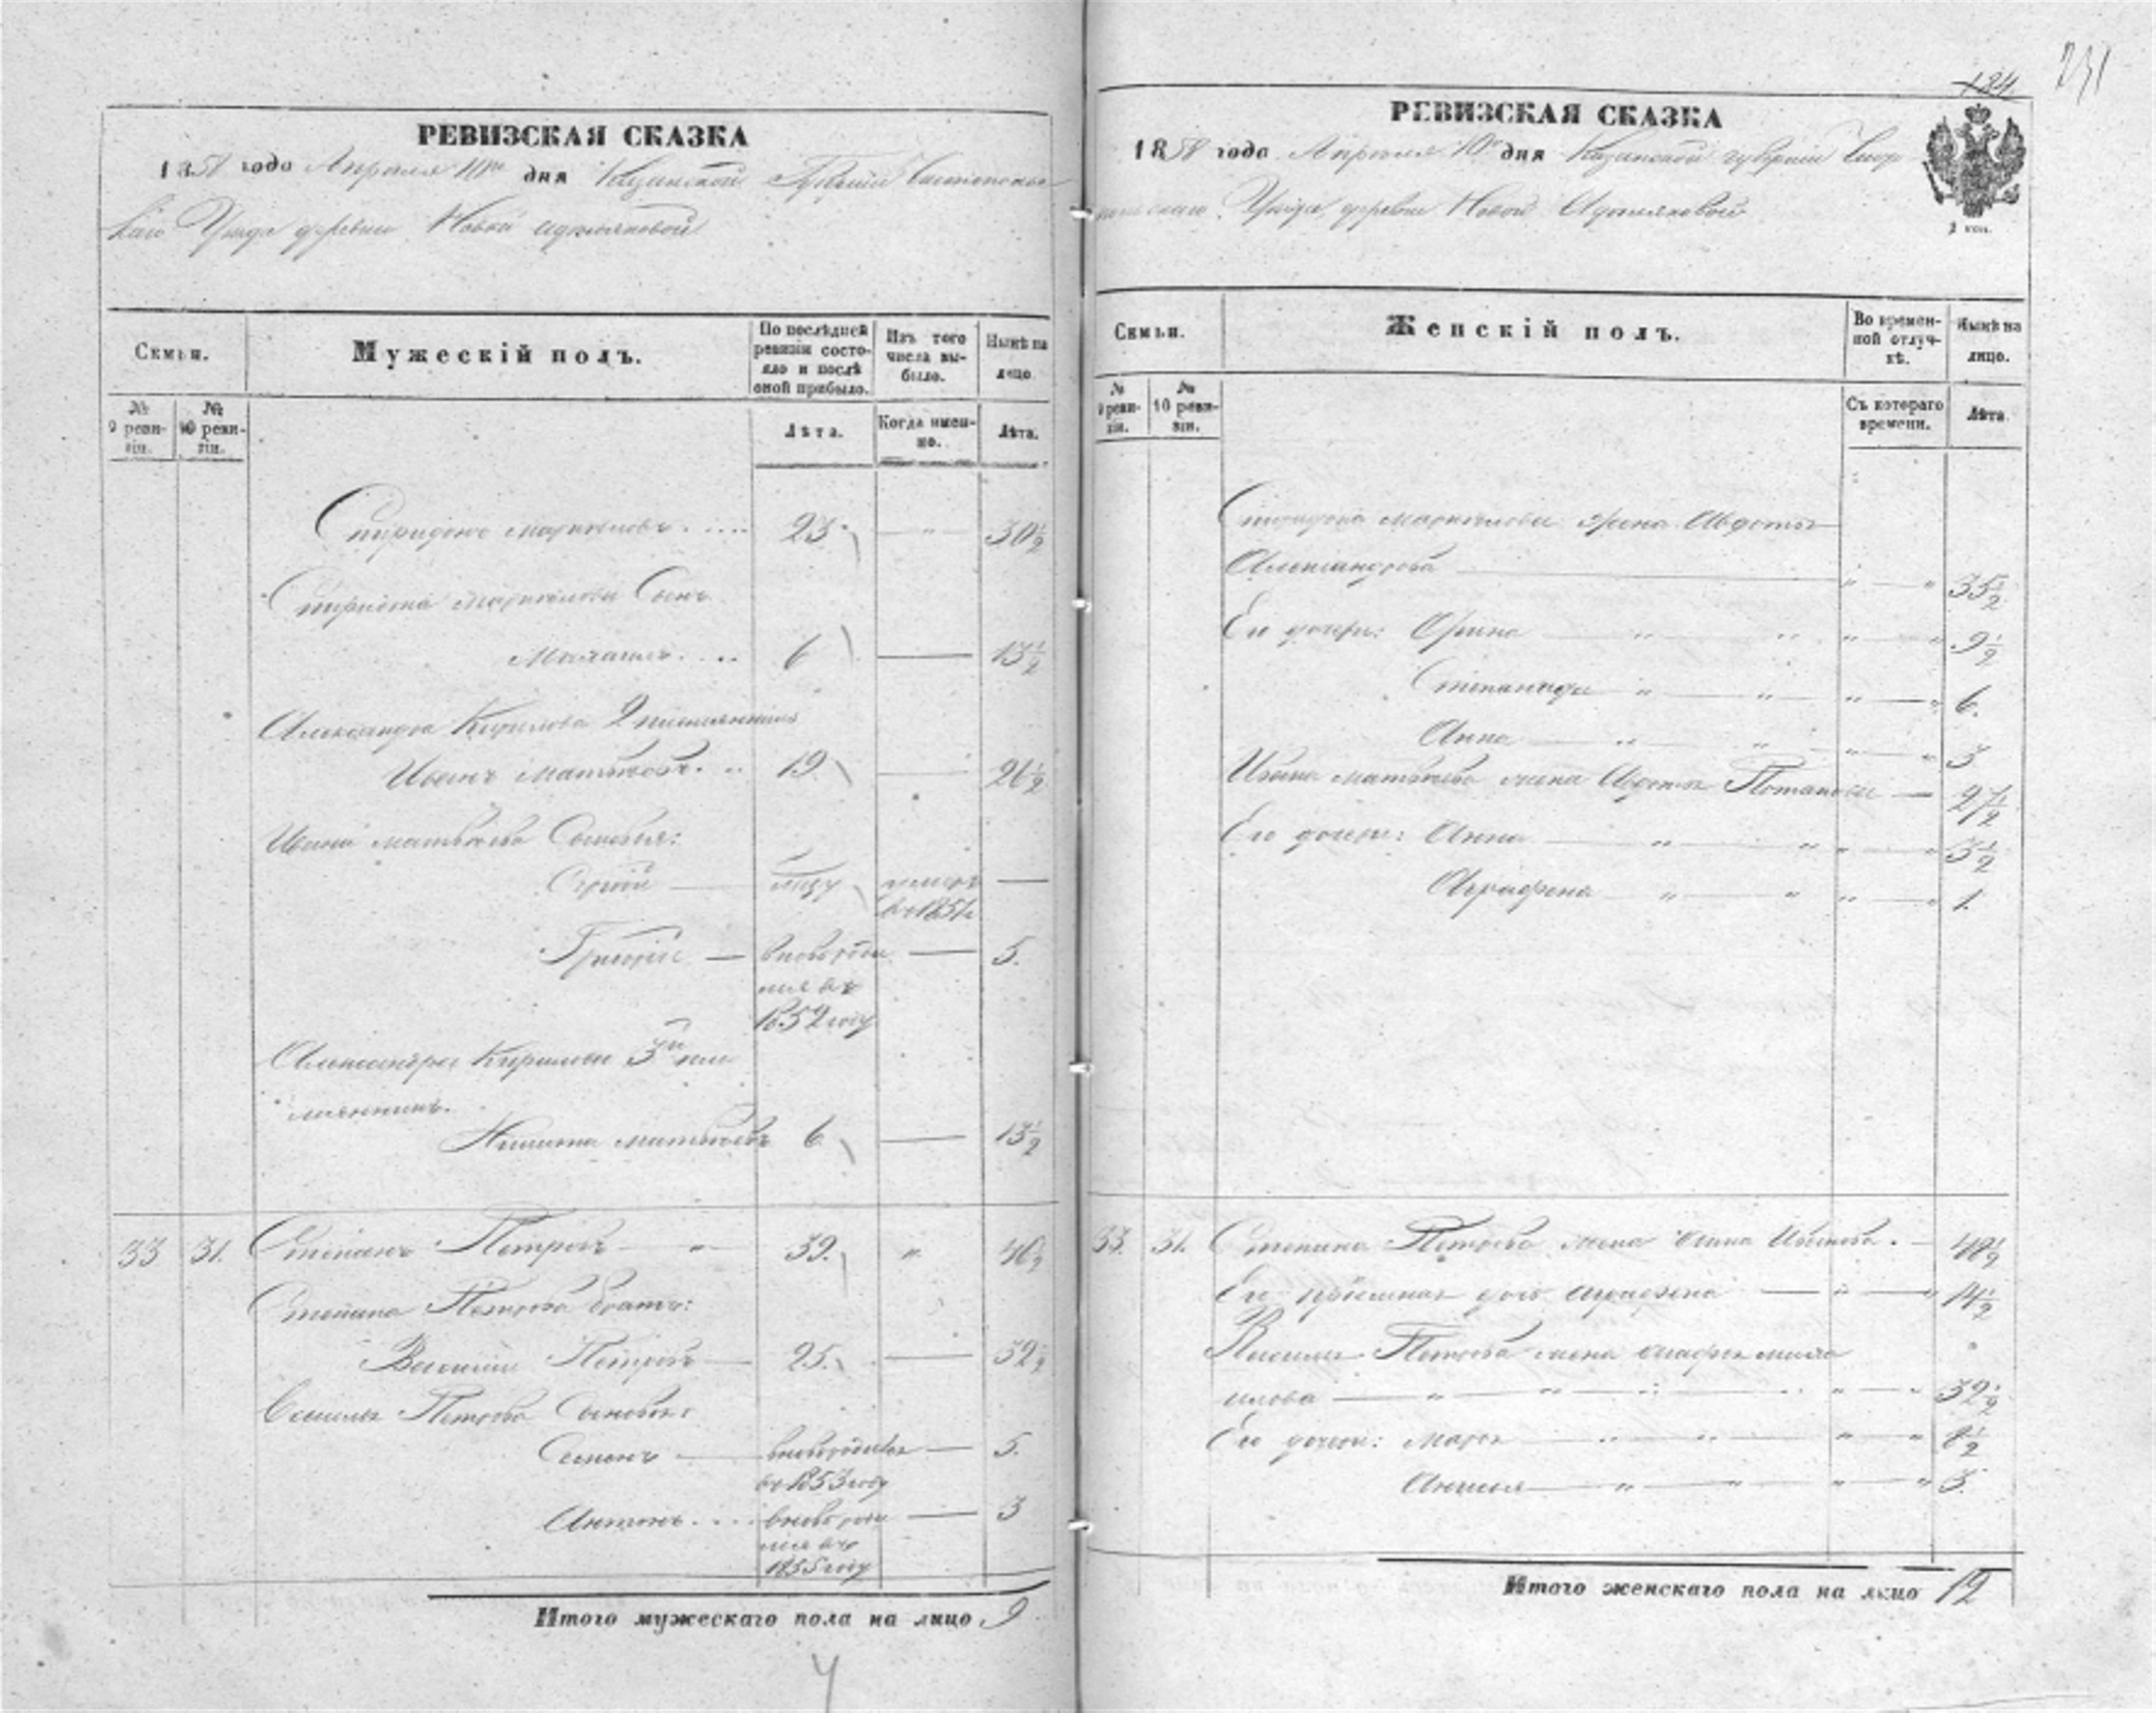 РЕВИЗСКАЯ СКАЗКА
1858 года Апреля 10го дня Казанской Губернiи Чистопольс-
каго Уезда деревни Новой Адамяковой
Семьи.
Мужескiй полъ.
По последней ревизiи состо-
яло и послѣ
оной прибыло.
Изъ того
числа вы-
было.
Нынѣ на
лицо.
№
9 реви-
зiи.
№
10 реви-
зiи.
Лѣта.
Когда имен-
но.
Лѣта.
Спиридонъ Маркеловъ 23 " 30½
Спиридона Маркелова Сынъ
6 13½
Александра Кирилова 2 племянникъ
Иванъ Матвѣевъ 19 26½
Ивана Матвѣева Сыновья:
Сергѣй умеръ
въ 185
Григорiй вновь роди 5.
лся въ
1852 году
Александра Кирилова 3й пле
мянникъ.
Никита Матвѣевъ 6 13½
33 31. Степанъ Петровъ " 39. " 46½
Степана Петрова братъ:
Василiй Петровъ 25. 32½
Василья Петрова Сыновья:
Семенъ вновь родился 5.
въ 1853 году
Антонъ вновь роди 3
лся въ
1855 году
Итого мужескаго пола на лицо 9
РЕВИЗСКАЯ СКАЗКА
1858 года Апреля 10го дня Казанской губернiи Чисто
польскаго Уезда деревни Новой Адамяковой
184
231
2 коп.
Семьи.
Женскiй полъ.
Во времен-
ной отлуч-
кѣ.
Нынѣ на
лицо.
№
9 реви-
зiи.
№
10 реви-
зiи.
Съ котораго
времени.
Лѣта.
Спиридона Маркелова жена Авдотья
Александрова " " 35½
Его дочери: Орина " " " " 9½
Степанида " " " " 6.
Анна " " " " 3
Ивана Матвѣева жена Авдотья Потапова 27½
Его дочери: Анна " " " " 3½
Аграфена " " " " 1.
33. 31. Степана Петрова жена Анна Иванова. 48½
Его прiемная дочь Аграфена " " 14½
Василья Петрова жена
32½
Его дочери: Марья " " " " 8½
" " " " 3.
Итого женскаго пола на лицо 12